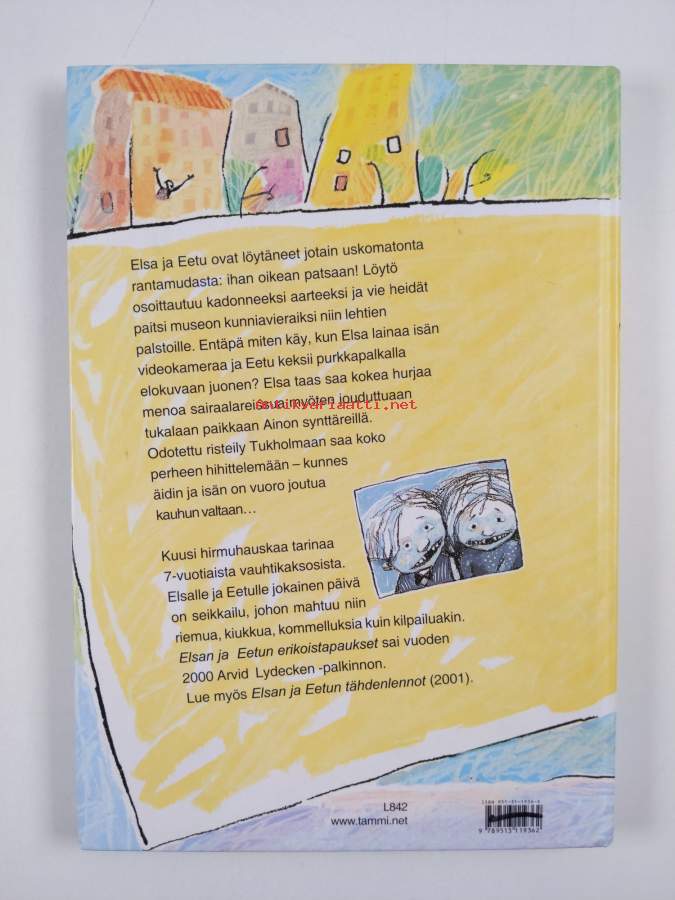 Elsa ja Eetu ovat löytäneet jotain uskomatonta
rantamudasta: ihan oikean patsaan! Löytö
osoittautuu kadonneeksi aarteeksi ja vie heidät
paitsi museon kunniavieraiksi niin lehtien
palstoille. Entäpä miten käy, kun Elsa lainaa isän
videokameraa ja Eetu keksii purkkapalkalla
elokuvaan juonen? Elsa taas saa kokea hurjaa
menoa sairaalareissua myöten jouduttuaan
antikvariaatti.net
tukalaan paikkaan Ainon synttäreillä.
Odotettu risteily Tukholmaan saa koko
perheen hihittelemään – kunnes
äidin ja isän on vuoro joutua
kauhun valtaan…
Kuusi hirmuhauskaa tarinaa
7-vuotiaista vauhtikaksosista.
Elsalle ja Eetulle jokainen päivä
on seikkailu, johon mahtuu niin
riemua, kiukkua, kommelluksia kuin kilpailuakin.
Elsan ja Eetun erikoistapaukset sai vuoden
2000 Arvid Lydecken -palkinnon.
Lue myös Elsan ja Eetun tähdenlennot (2001).
L842
www.tammi.net
9 789513 119362